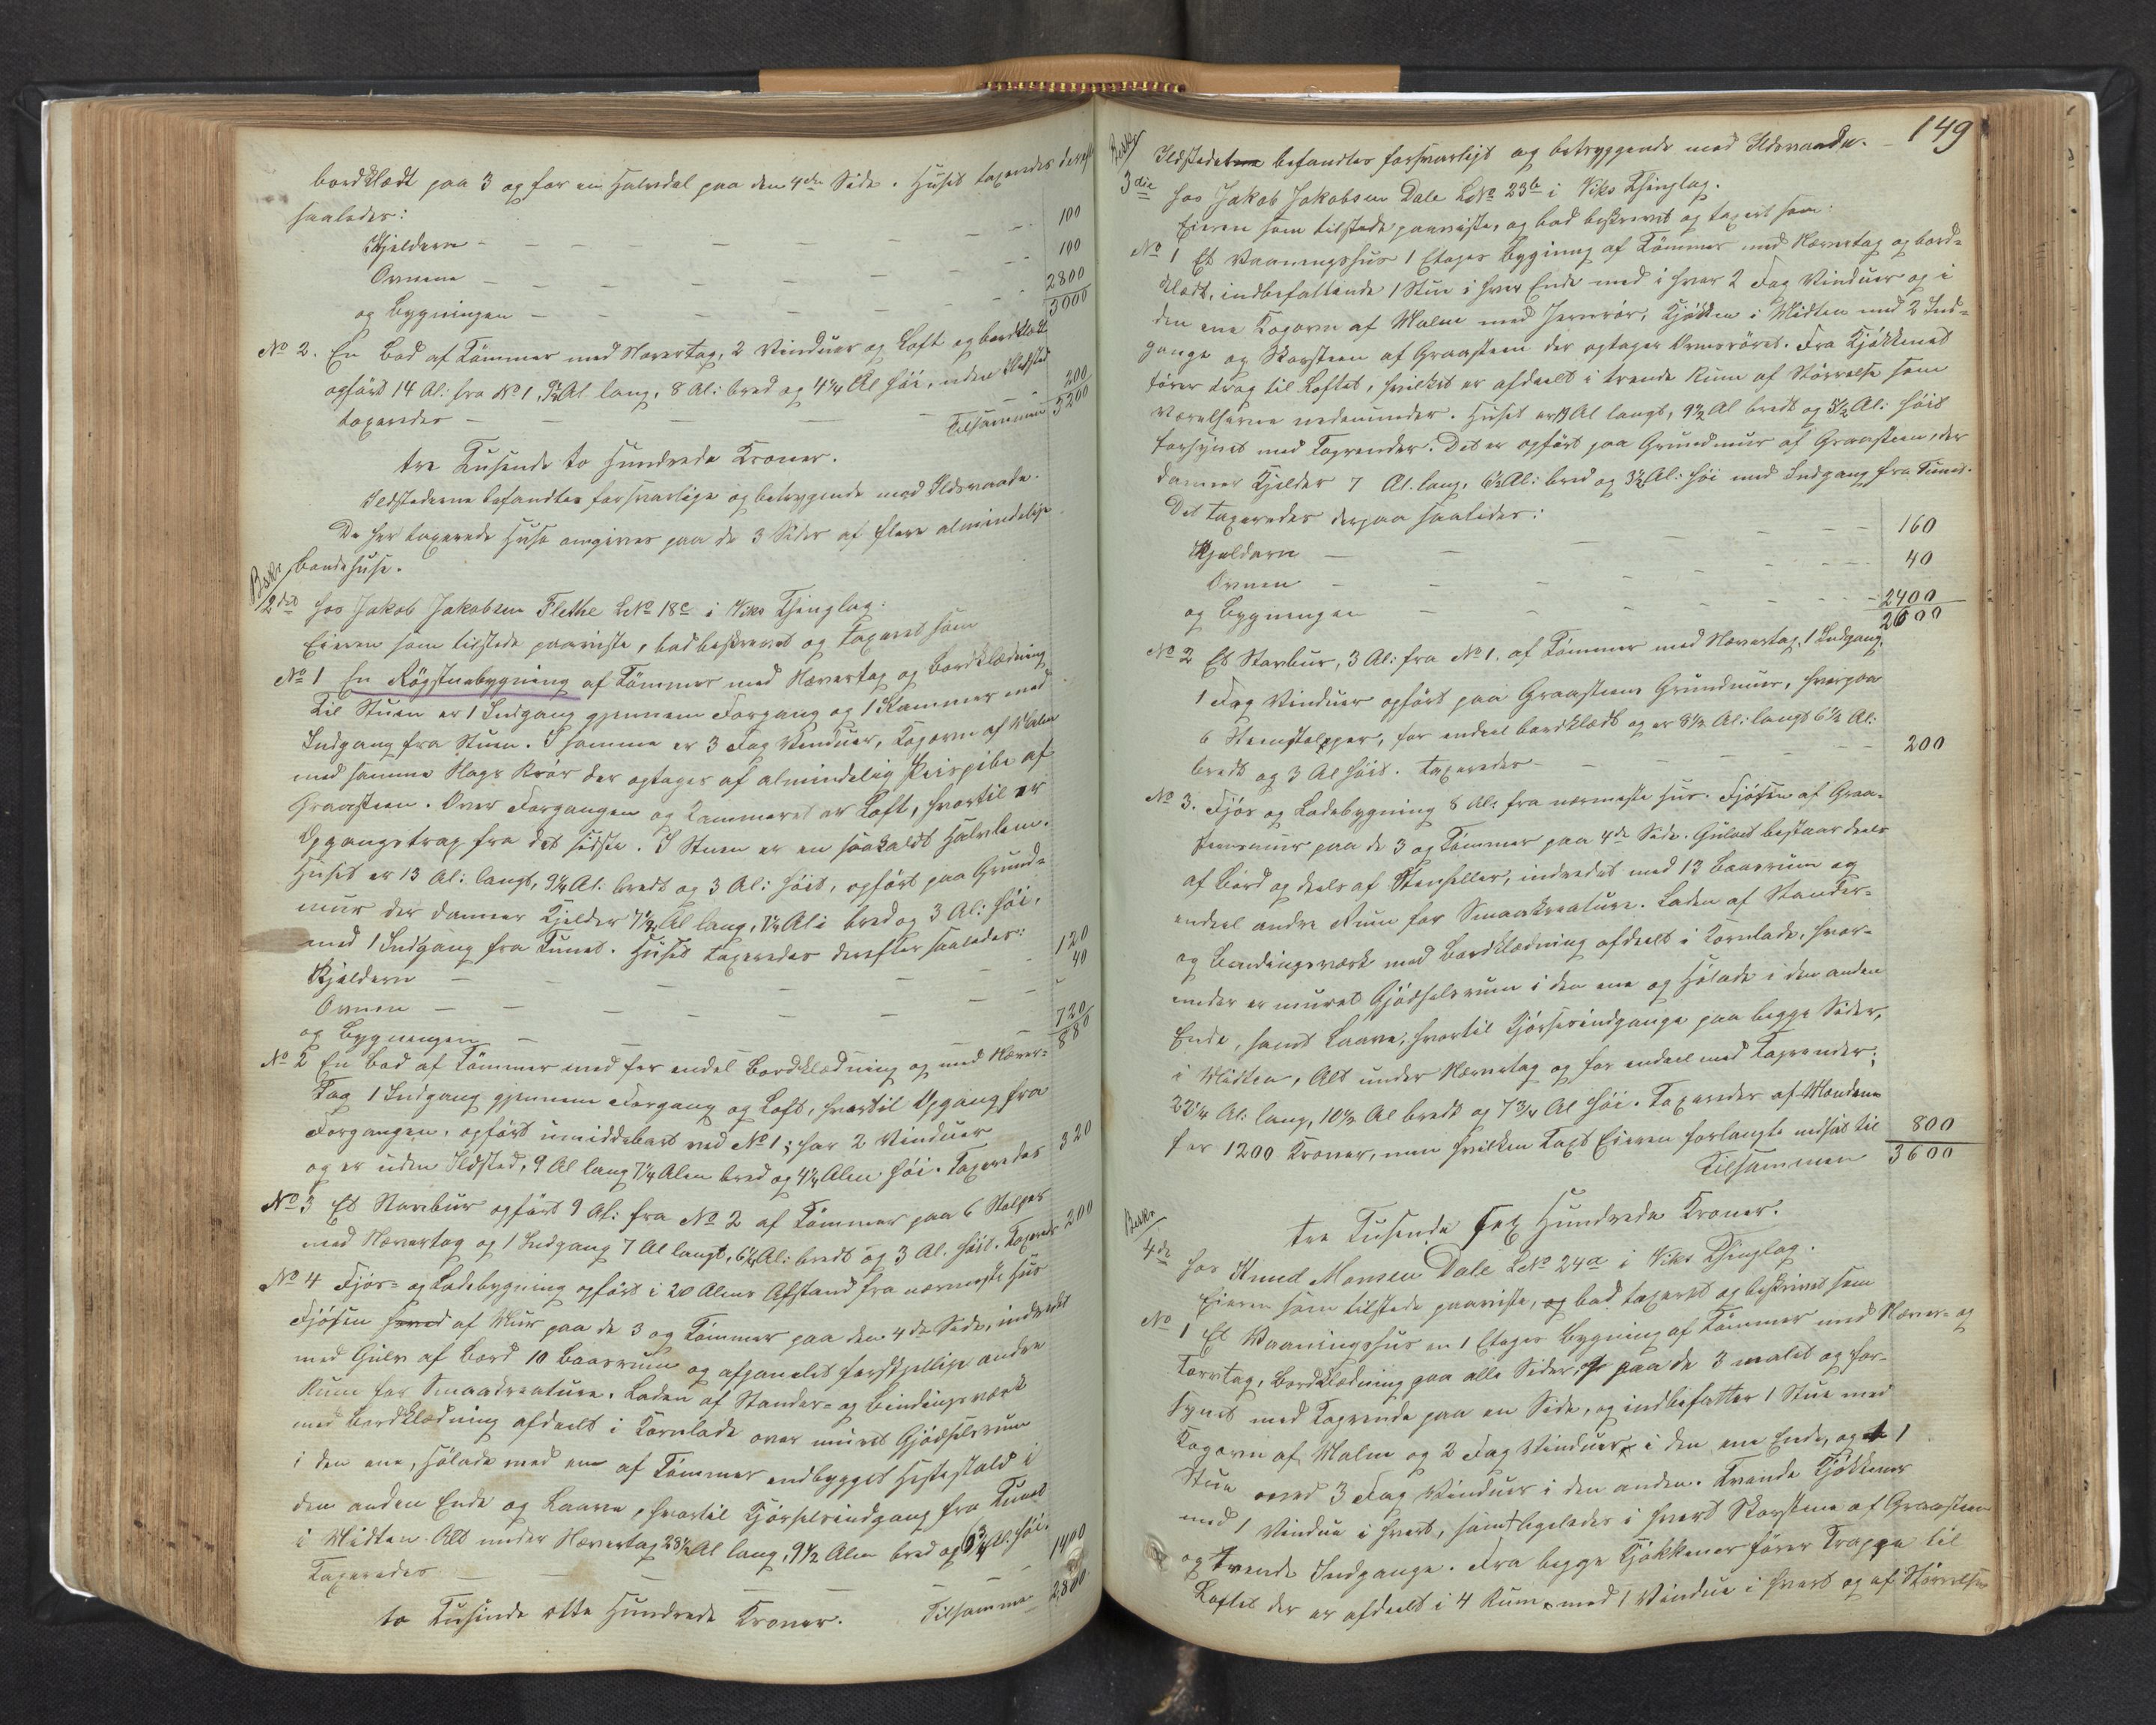 bordklædt paa 3 og for en Halvdel paa den 4de Side. Huset taxeredes derefter
saaledes:
Kjelderen - - - - - - - 100
Ovnene - - - - - - - 100
og Bygningen - - - - - - 2800
3000
No 2. En Bod af Tømmer med Nævertag, 2 Vinduer og Loft og bordklædt
opført 14 Al: fra No 1, Al lang, 8 Al: bred og 4 1/4 Al høi, uden Ildsted
taxeredes - - - - 200
Tilsammen 3200
tre Tusende to Hundrede Kroner.
Ildstederne befandtes forsvarlige og betryggende mod Ildsvaade.
De her taxerede Huse omgives paa de 3 Sider af flere almindelige
Bondehuse.
Beskr
2det hos Jakob Jakobsen Flethe LNo 18c i Viks Thinglag:
Eieren som tilstede paaviste, bad beskrevet og taxeret som
No 1 En Røgstuebygning af Tømmer med Nævertag og Bordklædning
Til Stuen er 1 Indgang gjennem Forgang og 1 Kammer med
Indgang fra Stuen. I samme er 3 Fag Vinduer, Kogovn af Malm
med samme Slags Rør der optages af almindelig Peispibe af
Graasteen. Over Forgangen og Kammeret er Loft, hvortil er
Opgangstrap fra det sidste. I Stuen er en saakaldt Halvlem.
Huset er 13 Al: langt, 9 1/4 Al: bredt og 3 Al: høit, opført paa Grund=
mur der danner Kjelder 7 1/2 Al lang, Al: bred og 3 Al: høi,
med 1 Indgang fra Tunet. Huset taxeredes derefter saaledes:
Kjelderen - - - - - - 120
Ovnen - - - - - - - 40
og Bygningen - - - 720
880
No 2 En Bod af Tømmer med for endel Bordklædning og med Næver=
Tag 1 Indgang gjennem Forgang og Loft, hvortil Opgang fra
Forgangen, opført umiddelbart ved No 1; har 2 Vinduer
og er uden Ildsted, 9 Al lang 7 1/4 Alen bred og 4 1/4 Alen høi. Taxeredes 320
No 3 Et Stavbur opført 9 Al: fra No 2 af Tømmer paa 6 Stolper
med Nævertag og 1 Indgang 7 Al langt, 6 1/4 Al: bredt og 3 Al. høit. Taxeres 200
No 4 Fjøs= og Ladebygning opført i 20 Alens Afstand fra nærmeste Hus
Fjøsen af Mur paa de 3 og Tømmer paa den 4de Side, indredet
med Gulv af Bord 10 Baasrum og afpanelet forskjellige andre
Rum for Smaakreature. Laden af Stander= og Bindingsværk
med Bordklædning afdeelt i Kornlade over muret Gjødselrum
i den ene, Hølade med en af Tømmer indbygget Hestestald i
den anden Ende og Laave, hvortil Kjørselsindgang fra Tunet
i Midten. Alt under Nævertag 23 1/2 Al lang, 9 1/2 Alen bred og 6 3/4 Al. høi.
Taxeredes - - - - - - 1400
Tilsammen 2800
to Tusinde otte Hundrede Kroner.
149
Beskr
Ildstedet befandtes forsvarligt og betryggende mod Ildsvaade.
3die hos Jakob Jakobsen Dale LNo 23b i Viks Thinglag.
Eieren som tilstede paaviste, og bad beskrevet og taxert som:
No 1 Et Vaaningshus 1 Etages Bygning af Tømmer med Nævertag og bord=
klædt, indbefattende 1 Stue i hver Ende med i hver 2 Fag Vinduer og i
den ene Kogovn af Malm med Jernrør; Kjøkken i Midten med 2 Ind=
gange og Skorsteen af Graasteen der optager Ovnsrøret. Fra Kjøkkenet
fører Trap til Loftet, hvilket er afdeelt i trende Rum af Størrelse som
Værelserne nedenunder. Huset er Al langt, 9 1/2 Al bredt og 5 1/2 Al: høit
forsynet med Tagrender. Det er opført paa Grundmur af Graasteen, der
danner Kjelder 7 Al. lang, 6 1/2 Al: bred og 3 1/4 Al: høi med Indgang fra Tunet.
Det taxeredes derpaa saaledes:
Kjelderen - - - - - - 160
Ovnen - - - - - - - 40
og Bygningen - - - - - - 2400
2600
No 2 Et Stavbur, 3 Al: fra No 1. af Tømmer med Nævertag, 1 Indgang,
1 Fag Vinduer opført paa Graasteens Grundmur, hvorpaa
6 Steenstolpper, for endeel bordklædt og er 8 1/2 Al: langt 6 1/2 Al:
bredt og 3 Al høit. taxeredes - - - - 200
No 3. Fjøs og Ladebygning 8 Al: fra nærmeste Hus. Fjøsen af Graa=
steensmur paa de 3 og Tømmer paa 4de Side. Gulvet bestaar deels
af Bord og deels af Steenheller, indredet med 13 Baasrum og
endeel andre Rum for Smaakreature. Laden af Stander=
og Bindingsværk med Bordklædning afdeelt i Kornlade, hvor=
under er muret Gjødselsrum i den ene og Hølade i den anden
Ende, samt Laave, hvortil Kjørselsindgange paa begge Sider,
i Midten, Alt under Nævertag og for endeel med Tagrender;
22 1/4 Al: lang, 10 1/2 Al bredt og 7 3/4 Al høi. Taxeredes af Mændene
for 1200 Kroner, men hvilken Taxt Eieren forlangte nedsat til 800
Tilsammen 3600
tre Tusende sex Hundrede Kroner.
Beskr
4de hos Knud Monsen Dale LNo 24a i Viks Thinglag.
Eieren som tilstede paaviste, og bad taxeret og beskrevet som
No 1 Et Vaaningshus en 1 Etages Bygning af Tømmer med Næver= og
Torvtag, Bordklædning paa alle Sider, paa de 3 malet og for=
synet med Tagrende paa en Side, og indbefatter 1 Stue med
Kogovn af Malm og 2 Fag Vinduer i den ene Ende, og 1
Stue med 3 Fag Vinduer i den anden. Tvende Kjøkkener
med 1 Vindue i hvert, samt ligeledes i hvert Skorsteen af Graasteen
og tvende Indgange. Fra begge Kjøkkener fører Trappe til
Loftet der er afdeelt i 4 Rum, med 1 Vindue i hvert og af Størrelse